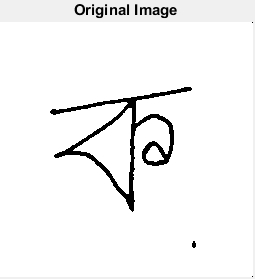 Original Image
ক